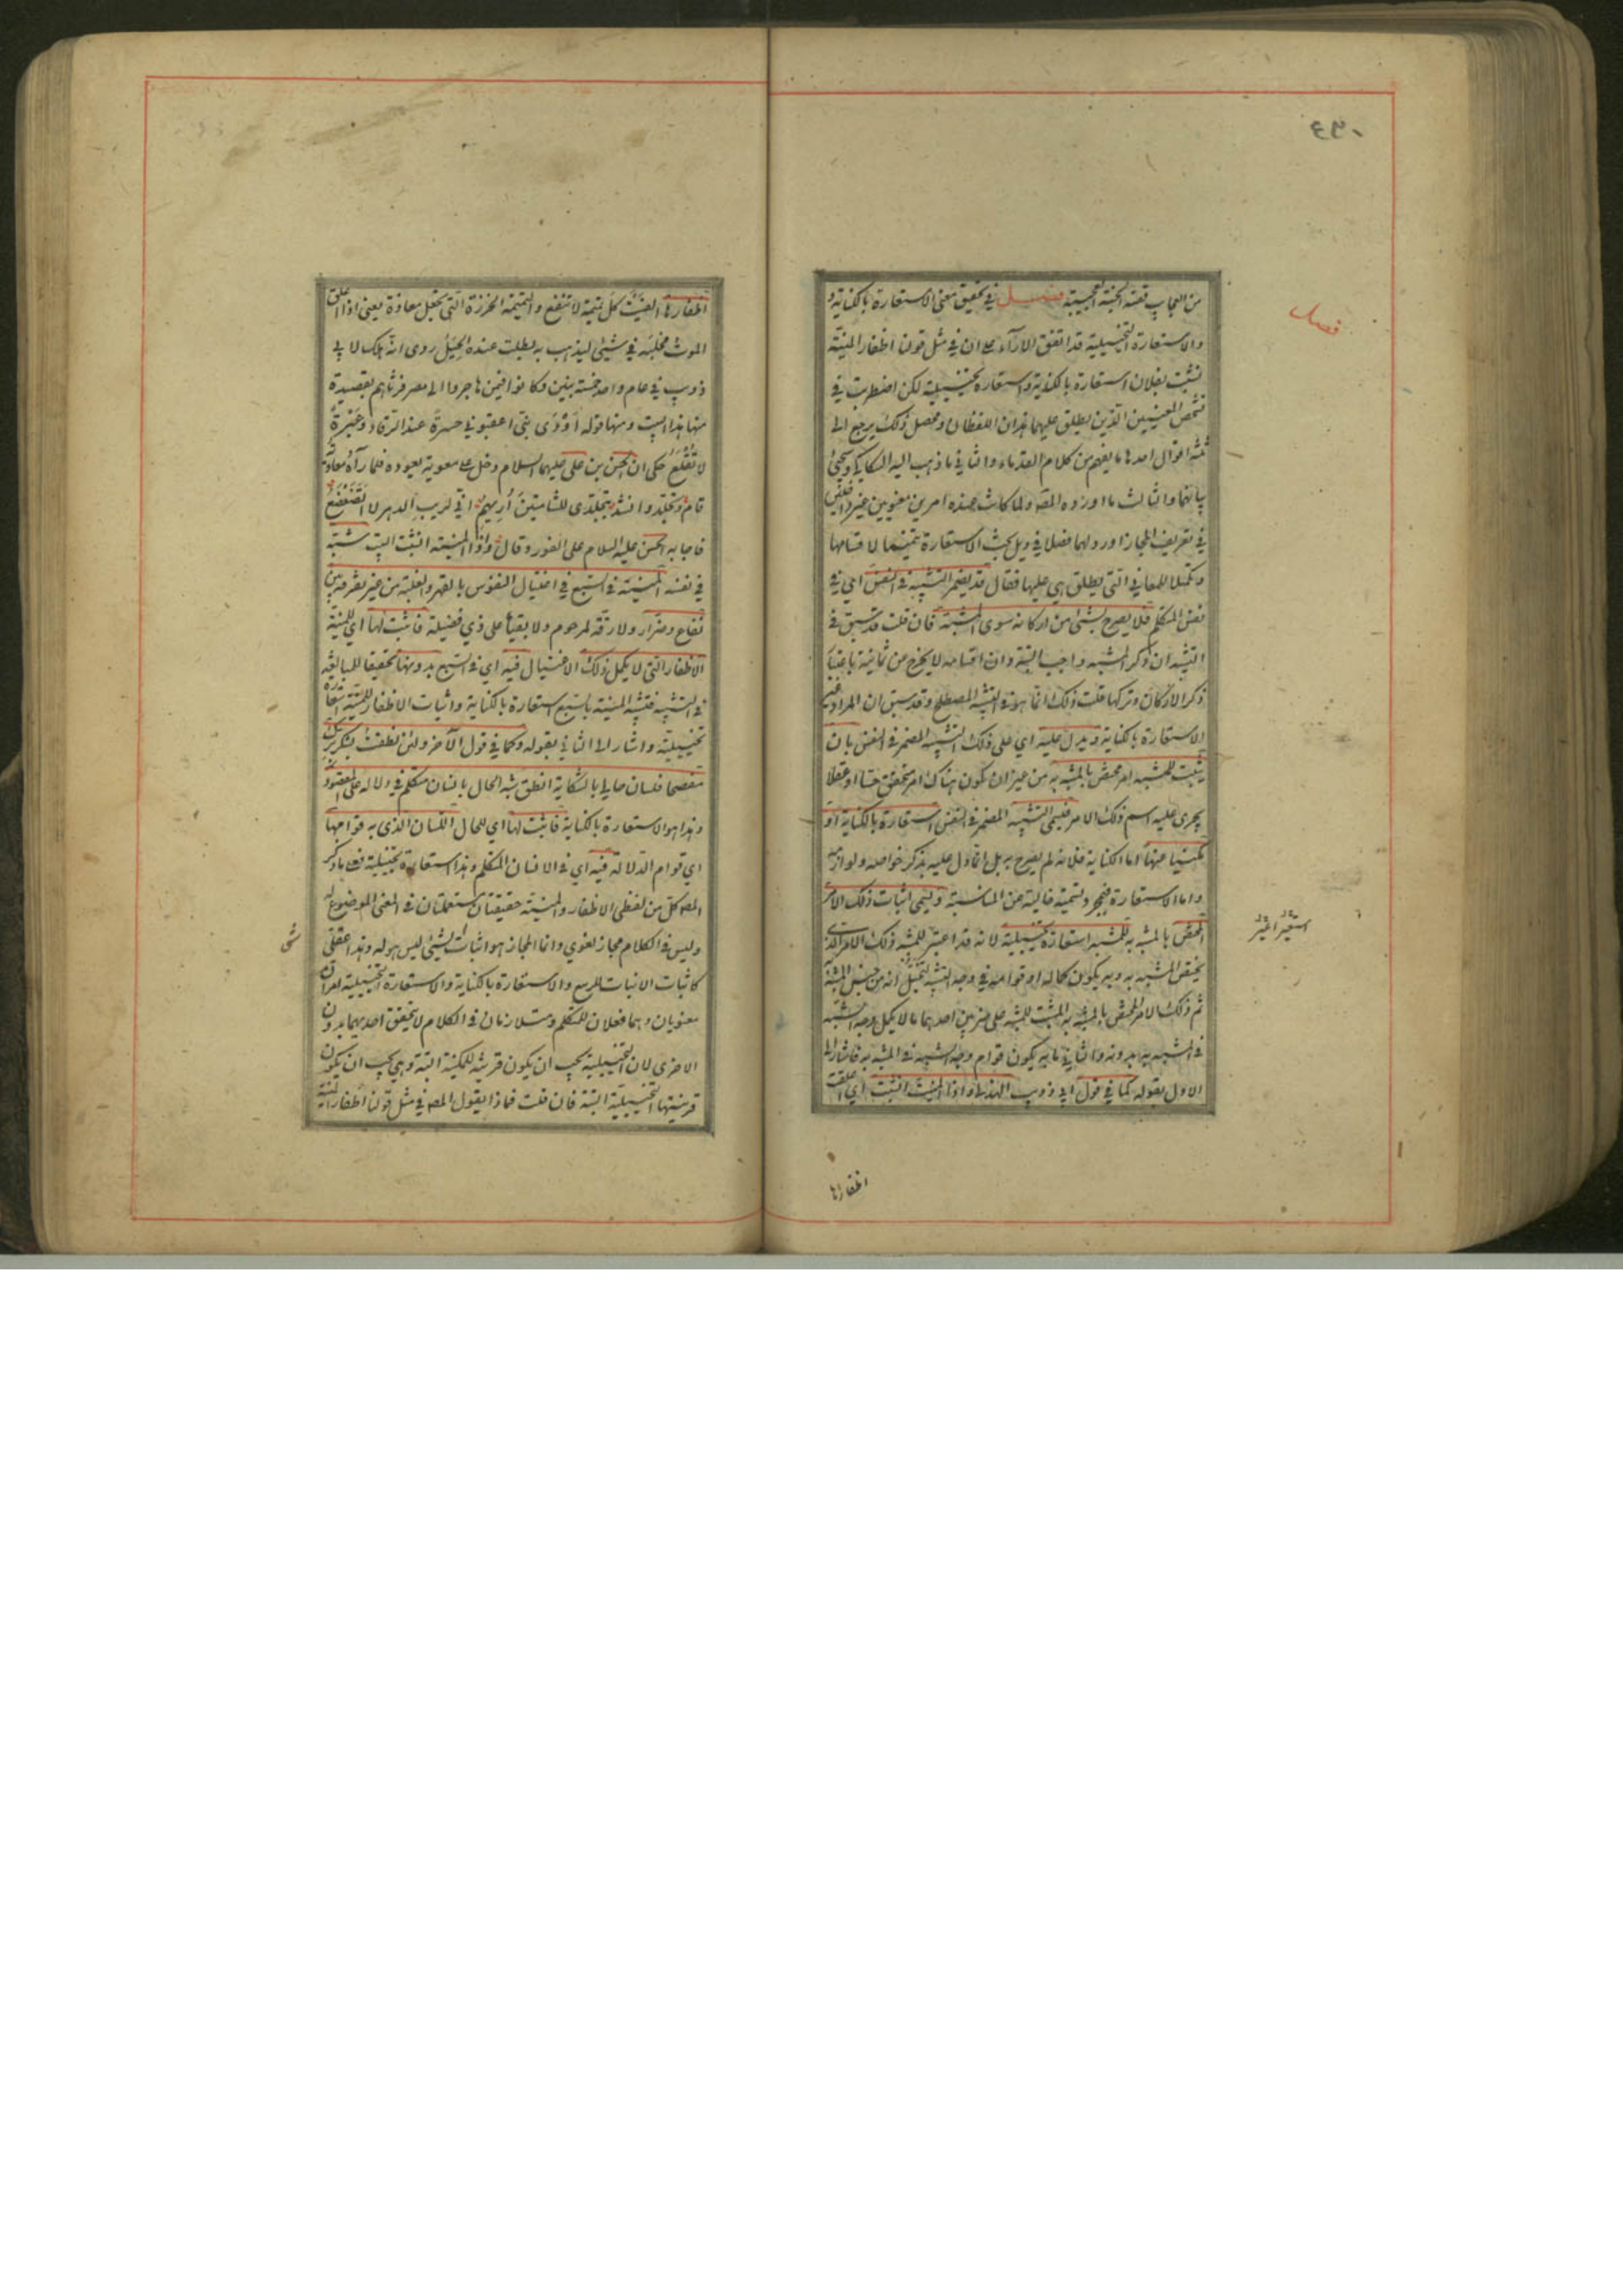 من العجاب قصة الجنة العجيبة فصل في تحقيق معنى الاستعارة بالكناية و
والاستعارة التخييلية قد اتفق الآراء على ان في مثل قولنا اظفار المنية
نشبت بفلان استعارة بالكناية واستعارة تخييلية لكن اضطربت في
تشخص المعنيين الذين يطلق عليهما هذان اللفظان ومحصل ذلك يرجع الى
ثلثة اقوال احدها ما يفهم من كلام القدماء والثاني ما ذهب اليه السكاكي وسيجئ
بيانهما والثالث ما اورده المصه ولما كانت عنده امرين معنويين غير داخلين
في تعريف المجاز اورد لهما فصلا في ذيل بحث الاستعارة تتميما لاقسامها
وتكميلا للمعاني التي يطلق هي عليها فقال قد يضمر التشبيه في النفس اي في
نفس المتكلم فلا يصرح بشئ من اركانه سوى المشبه فان قلت قد سبق في
التشبيه ان ذكر المشبه به واجب البتة وان اقسامه لا يخرج من ثمانية باعتبار
ذكر الاركان وتركها قلت ذلك انما هو في التشبيه المصطلح وقد سبق ان المراد به غير
الاستعارة بالكناية ويدل عليه اي على ذلك التشبيه المضمر في النفس بان
يثبت للمشبه امر مختص بالمشبه به من غير ان يكون هناك امر متحقق حسا او عقلا
يجرى عليه اسم ذلك الامر فيسمى التشبيه المضمر في النفس استعارة بالكناية او
مكنيا عنها اما الكناية فلانه لم يصرح به بل انما دل عليه بذكر خواصه ولوازمه
واما الاستعارة فمجرد تسمية خالية عن المناسبة ويسمى اثبات ذلك الامر
المختص بالمشبه به للمشبه استعارة تخييلية لانه قد استعير للمشبه ذلك الامر الذي
يختص المشبه به وبه يكون كماله او قوامه في وجه الشبه لتخيل انه من جنس المشبه به
ثم ذلك الامر المختص بالمشبه به المثبت للمشبه على ضربين احدهما ما لا يكمل وجه الشبه
في المشبه به بدونه والثاني ما به يكون قوام وجه الشبه في المشبه به فاشار الى
الاول بقوله كما في قول ابي ذؤيب الهذلي واذا المنية انشبت اي علقت
اظفارها
فصل
اظفارها الفيت كل تميمة لا تنفع والتميمة الخرزة التي تجعل معاذة يعني اذا علق
الموت مخلبه في شئ ليذهب به بطلت عنده الحيل روى انه هلك لابي
ذويب في عام واحد خمسة بنين وكانوا فيمن هاجروا الى مصر فرثاهم بقصيدة
منها هذا البيت ومنها قوله اودى بني اعقبوني حسرة عند الرقاد وعبرة
لا تقلع حكى ان الحسن بن على عليهما السلام دخل على معوية يعوده فلما رآه معاوية
قام وتجلد وانشد بتجلدى للشامتين اريهم اني لريب الدهر لا اتضعضع
فاجابه الحسن عليه السلام على الفور وقال واذا المنية انشبت البيت شبه
في نفسه المنية في السبع في اغتيال النفوس بالقهر والغلبة من غير تفرقة بين
نفاع وضرار ولا رقة لمرحوم ولا بقيا على ذي فضيلة فاثبت لها اي للمنية
الاظفار التي لا يكمل ذلك الاغتيال فيه اي في السبع بدونها تحقيقا للمبالغة
في التشبيه فتشبيه المنية بالسبع استعارة بالكناية واثبات الاظفار للمنية استعارة
تخييلية واشار الى الثاني بقوله وكما في قول الآخر ولئن نطقت بشكر برك
مفصحا فلسان حالي بالشكاية انطق شبه الحال بانسان متكلم في دلالة على المقصود
وهذا هو الاستعارة بالكناية فاثبت لها اي للحال اللسان الذي به قوامها
اي قوام الدلالة فيه اي في الانسان المتكلم وهذا استعارة تخييلية فعلى ما ذكر
المصه كل من لفظي الاظفار والمنية حقيقتان مستعملتان في المعنى الموضوع له
وليس في الكلام مجاز لغوي وانما المجاز هو اثبات شئ لشئ ليس هو له وهذا عقلي
كاثبات الانبات للربيع والاستعارة بالكناية والاستعارة التخييلية امران
معنويان وهما فعلان للمتكلم ومتلازمان في الكلام لا يتحقق احديهما بدون
الاخرى لان التخييلية يجب ان يكون قرينة للمكنية البتة وهي يجب ان يكون
قرينتها التخييلية البتة فان قلت فماذا يقول المصه في مثل قولنا اظفار المنية